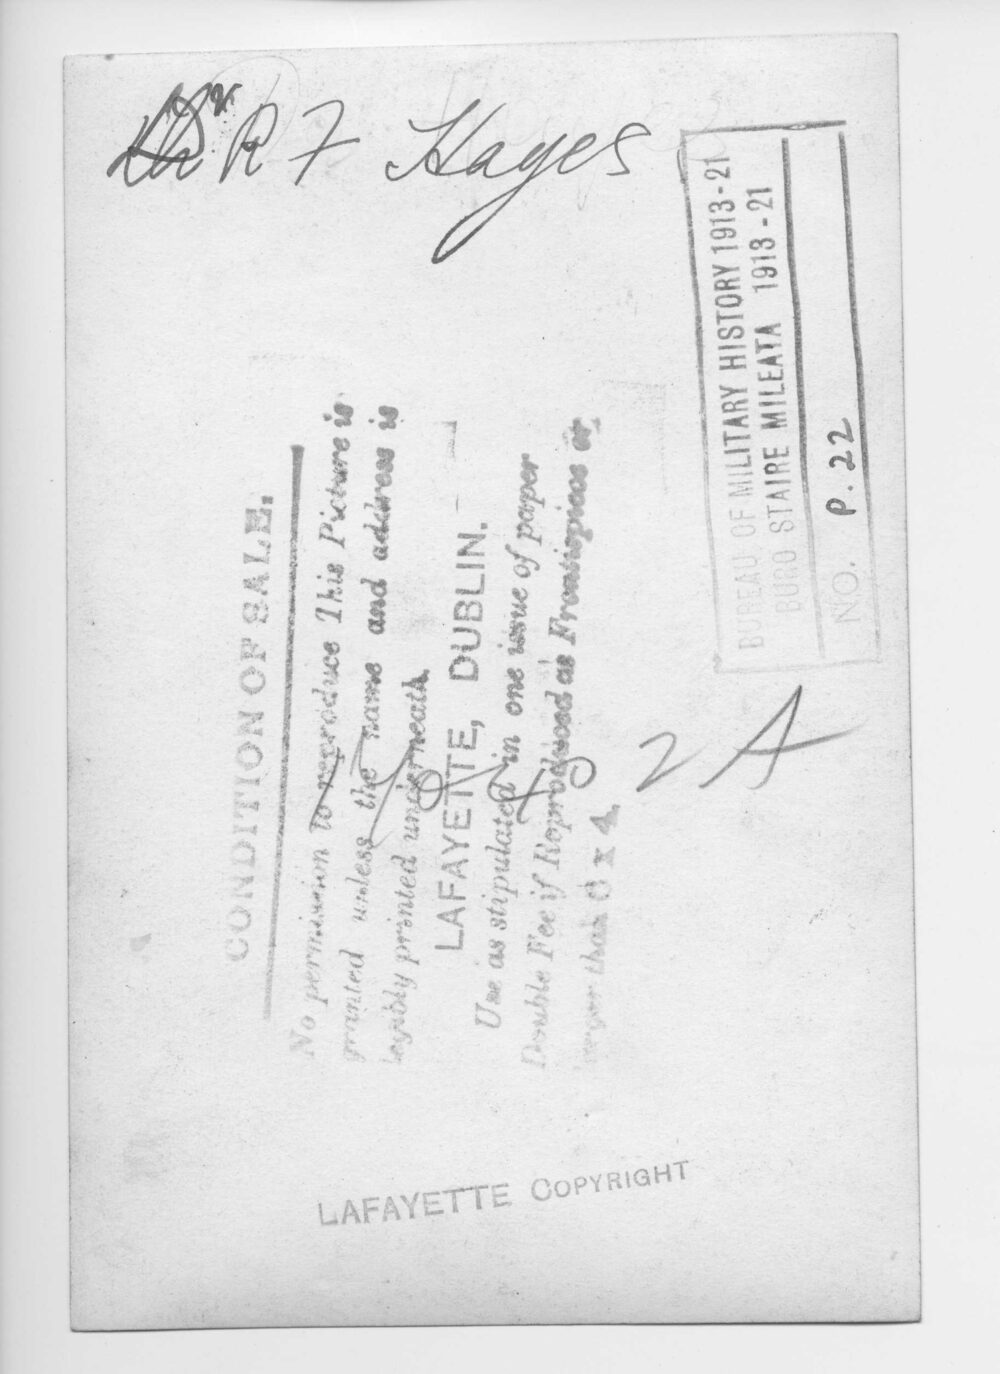 Dr R F Hayes
BUREAU OF MILITARY HISTORY 1913-21
BURO STAIRE MILEATA 1913-21
NO. P. 22
CONDITION OF SALE.
No permission to reproduce This Picture is
granted unless the name and address is
legibly printed underneath
LAFAYETTE, DUBLIN.
Use as stipulated in one issue of paper
Double Fee if Reproduced as Frontispiece or
larger than 6 x 4.
2A
LAFAYETTE COPYRIGHT